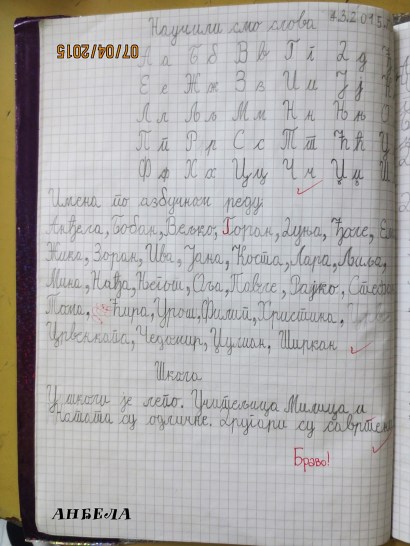 Научили смо слова
4.3.2015.
07/04/2015
А а Б б В в Г г Д д
Е е Ж ж З з И и Ј ј
Л л Љ љ М м Н н Њ њ
П п Р р С с Т т Ћ ћ
Ф ф Х х Ц ц Ч ч Џ џ Ш
Имена по азбучном реду
Анђела, Бобан, Вељко, Горан, Дуња, Ђоле,
Жика, Зоран, Ива, Јана, Коста, Лара, Љиља,
Мина, Нађа, Његош, Оља, Павле, Рајко,
Тома, Ћира, Урош, Филип, Христина,
Црвенкапа, Чедомир, Џулиан, Ширкан
Школа
У школи је лепо. Учитељица Милица и
Ната су одличне. Другари су савршени
Браво!
АНЂЕЛА